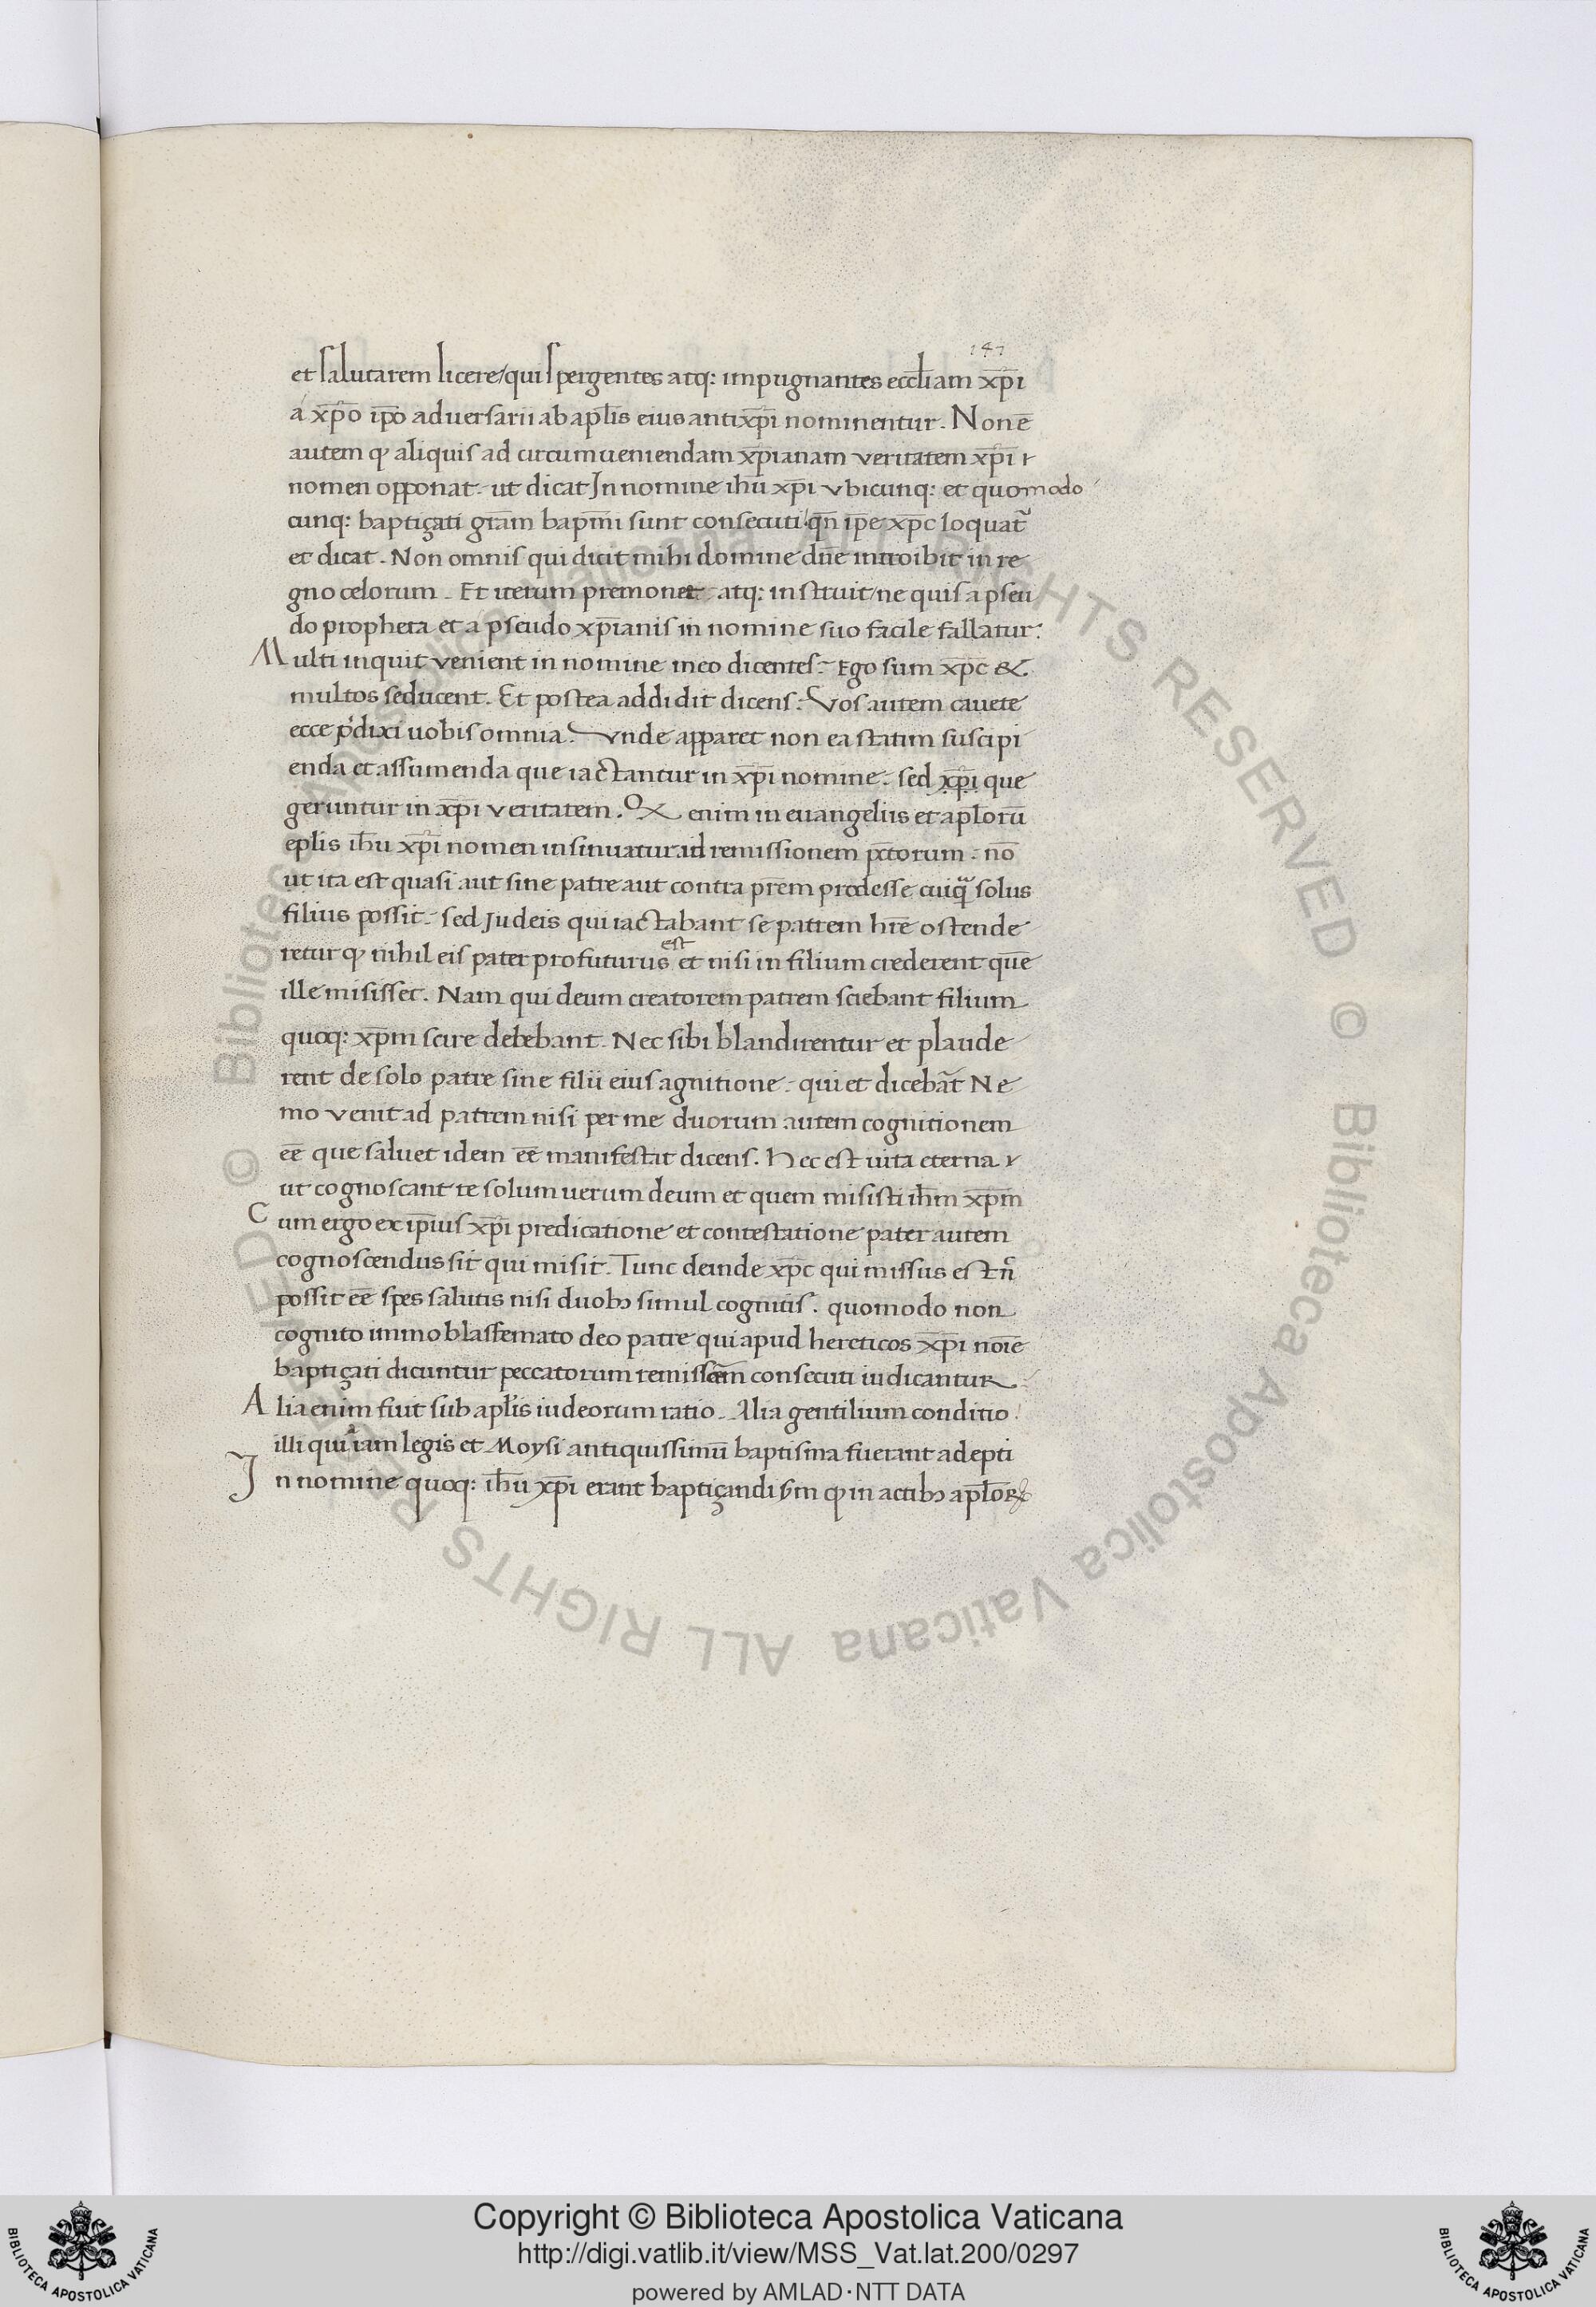 147
et salutarem licere / qui spergentes atq: impugnantes eccl̄iam xp̄i
a xp̄o ip̄o adversarii ab apl̄is eius antixp̄i nominentur. Non ē
autem ꝙ aliquis ad circumueniendam xp̄ianam veritatem xp̄i
nomen opponat. ut dicat In nomine ihū xp̄i vbicunq: et quomodo
cunq: baptiçati grām bapm̄i sunt consecuti / qn̄ ip̄e xp̄c loquat᷑
et dicat. Non omnis qui dicit mihi domine dn̄e introibit in re
gno celorum. Et iterum premonet atq: instruit / ne quis a pseu
do propheta et a pseudo xp̄ianis in nomine suo facile fallatur:
Multi inquit venient in nomine meo dicentes. Ego sum xp̄c &
multos seducent. Et postea addidit dicens. Vos autem cavete
ecce p̄dixi uobis omnia. Vnde apparet non ea statim suscipi
enda et assumenda que iactantur in xp̄i nomine. sed xp̄i que
geruntur in xp̄i veritatem. Qꝛ enim in euangeliis et aplorū
eplis ihū xp̄i nomen insinuatur ad remissionem pctorum. nō
ut ita est quasi aut sine patre aut contra prēm prodesse cuiqᷓ solus
filius possit. sed Judeis qui iactabant se patrem hr̄e ostende
retur ꝙ nihil eis pater profuturus est et nisi in filium crederent quē
ille misisset. Nam qui deum creatorem patrem sciebant filium
quoq: xp̄m scire debebant. Nec sibi blandirentur et plaude
rent de solo patre sine filii eius agnitione. qui et dicebāt Ne
mo venit ad patrem nisi per me duorum autem cognitionem
eē que saluet idem eē manifestat dicens. Hec est uita eterna
ut cognoscant te solum uerum deum et quem misisti ihm̄ xp̄m
Cum ergo ex ip̄ius xp̄i predicatione et contestatione pater autem
cognoscendus sit qui misit. Tunc deinde xp̄c qui missus est n̄
possit eē spes salutis nisi duobꝫ simul cognitis. quomodo non
cognito immo blasfemato deo patre qui apud hereticos xp̄i noīe
baptiçati dicuntur peccatorum remissōem consecuti iudicantur
Alia enim fiut sub apl̄is iudeorum ratio. Alia gentilium conditio
illi quia iam legis et Moysi antiquissimū baptisma fuerant adepti
In nomine quoq: ihū xp̄i erant baptiçandi s̄m ꝙ in actibꝫ apl̄oꝝ
© Biblioteca Apostolica Vaticana ALL RIGHTS RESERVED © Biblioteca Apostolica Vaticana ALL RIGHTS RESERVED
Copyright © Biblioteca Apostolica Vaticana
http://digi.vatlib.it/view/MSS_Vat.lat.200/0297
powered by AMLAD·NTT DATA
BIBLIOTECA APOSTOLICA VATICANA
BIBLIOTECA APOSTOLICA VATICANA